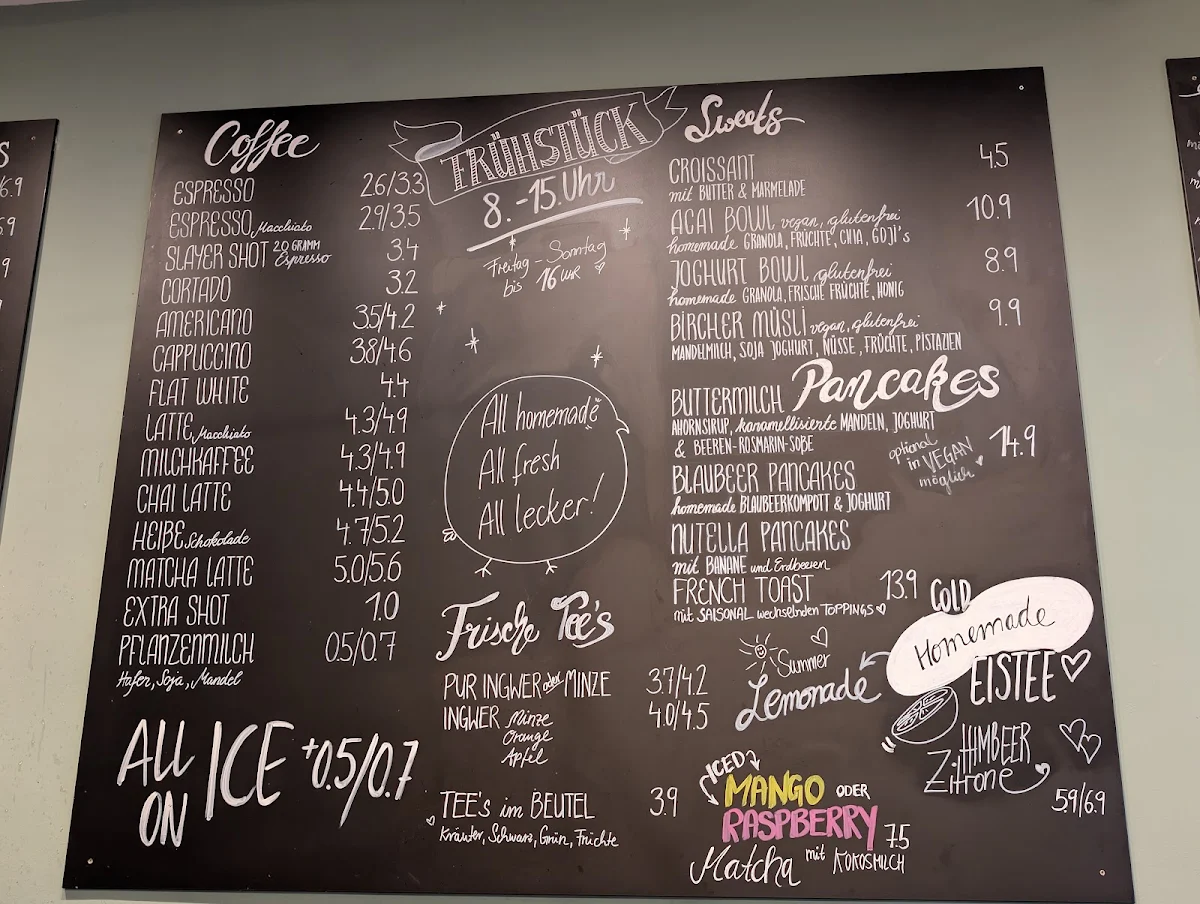 Coffee
ESPRESSO 2.6/3.3
ESPRESSO Macchiato 2.9/3.5
SLAYER SHOT 20 GRAMM Espresso 3.4
CORTADO 3.2
AMERICANO 3.5/4.2
CAPPUCCINO 38/4.6
FLAT WHITE 4.4
LATTE Macchiato 4.3/4.9
MILCHKAFFEE 4.3/4.9
CHAI LATTE 4.4/5.0
HEIßE Schokolade 4.7/5.2
MATCHA LATTE 5.0/5.6
EXTRA SHOT 1.0
PFLANZENMILCH 0.5/0.7
Hafer, Soja, Mandel
ALL ON ICE +0.5/0.7
FRÜHSTÜCK
8.-15. Uhr
Freitag - Sonntag
bis 16 UHR
All homemade
All fresh
All lecker!
Frische Tee's
PUR INGWER oder MINZE 3.7/4.2
INGWER Minze 4.0/4.5
Orange
Apfel
TEE's im BEUTEL 3.9
Kräuter, Schwarz, Grün, Früchte
Sweets
CROISSANT 4.5
mit BUTTER & MARMELADE
ACAI BOWL vegan, glutenfrei 10.9
homemade GRANOLA, FRÜCHTE, CHIA, GOJI's
JOGHURT BOWL glutenfrei 8.9
homemade GRANOLA, FRISCHE FRÜCHTE, HONIG
BIRCHER MÜSLI vegan, glutenfrei 9.9
MANDELMILCH, SOJA JOGHURT, NÜSSE, FRÜCHTE, PISTAZIEN
Pancakes
BUTTERMILCH
AHORNSIRUP, karamellisierte MANDELN, JOGHURT
& BEEREN-ROSMARIN-SOßE
optional
in VEGAN
möglich
14.9
BLAUBEER PANCAKES
homemade BLAUBEERKOMPOTT & JOGHURT
NUTELLA PANCAKES
mit BANANE und Erdbeeren
FRENCH TOAST 13.9
mit SAISONAL wechselnden TOPPINGS
COLD
Homemade
EISTEE
Summer
Lemonade
HIMBEER
Zitrone
5.9/6.9
ICED
MANGO ODER
RASPBERRY 7.5
Matcha mit KOKOSMILCH
S
/6.9